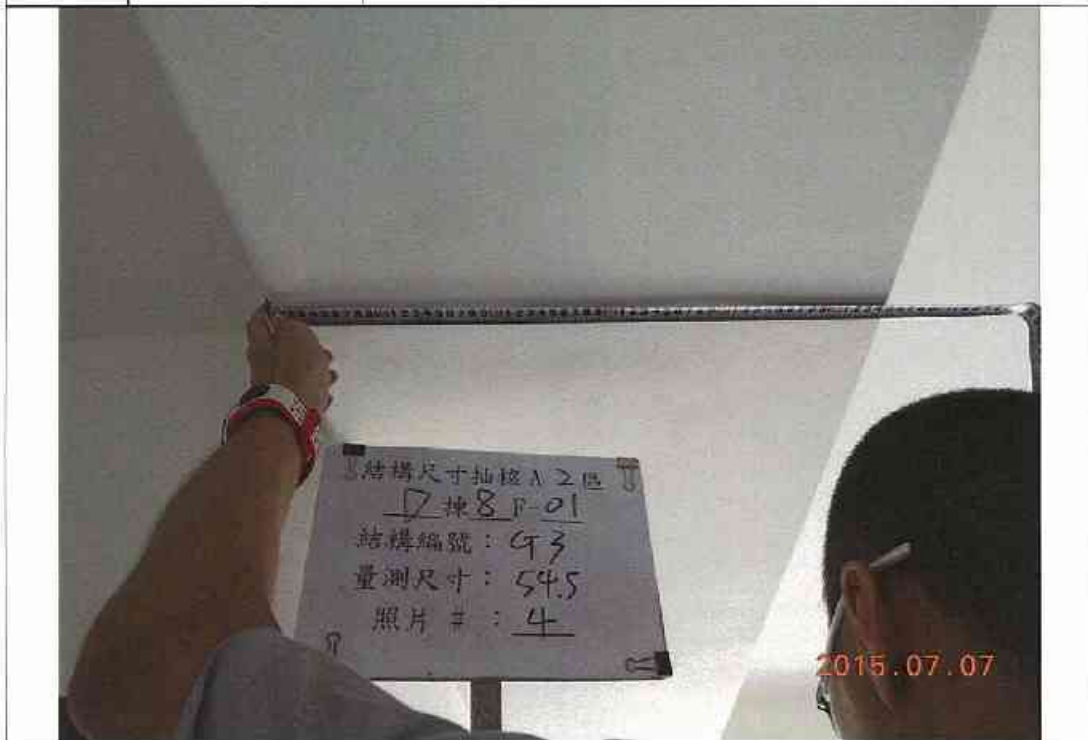 結構尺寸抽核A2區
D棟8F-01
結構編號：G3
量測尺寸：54.5
照片#：4
2015.07.07